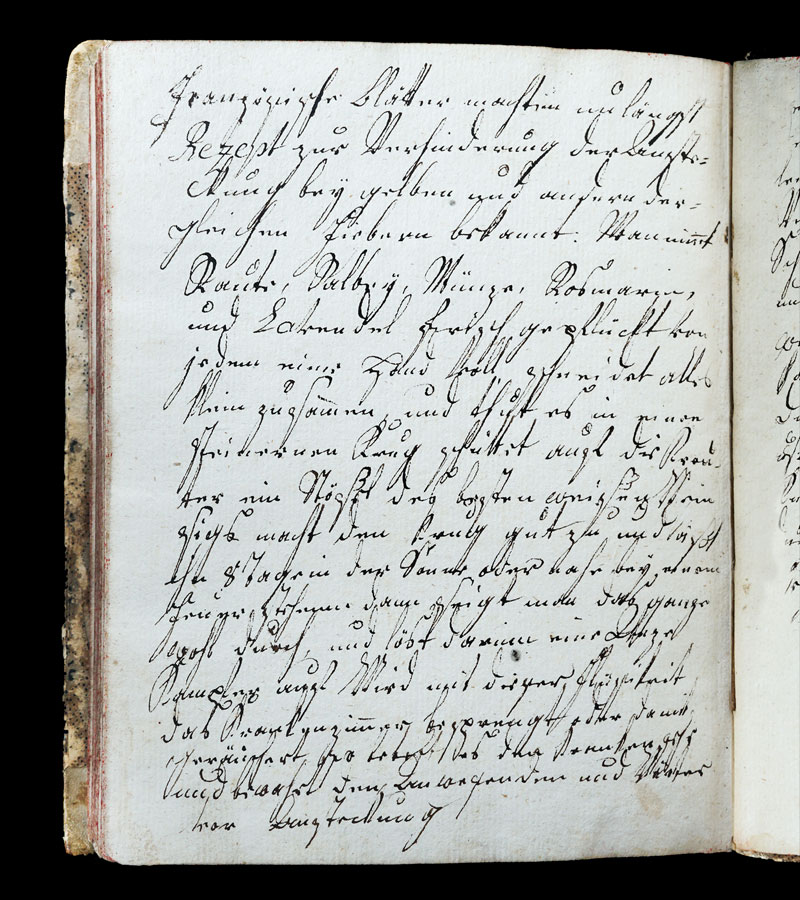 Französische Blätter machten unlängst
Rezept zur Verhinderung der Anste=
ckung bey gelben und andern der=
gleichen Fiebern bekannt. Man nimt
Raute, Salbey, Münze, Rosmarin,
und Lavendel frisch gepflückt von
jedem eine Hand voll, schneidet alles
klein zusammen, und thut es in einen
steinernen Krug schüttet auf die Kräu-
ter ein des besten weissen Wein
macht den Krug gut zu und läßt
ihn 8 Tage in der Sonne oder nahe bey einem
Feuer stehen dann seigt man das ganze
wohl durch, und löst darinn eine Unze
Kampfer auf Wird mit dieser Flüssikeit
das Krankenzimmer besprengt oder damit
geräuchert, so es den Kranken
und bewahrt den Anwesenden und Wärter
vor Ansteckung